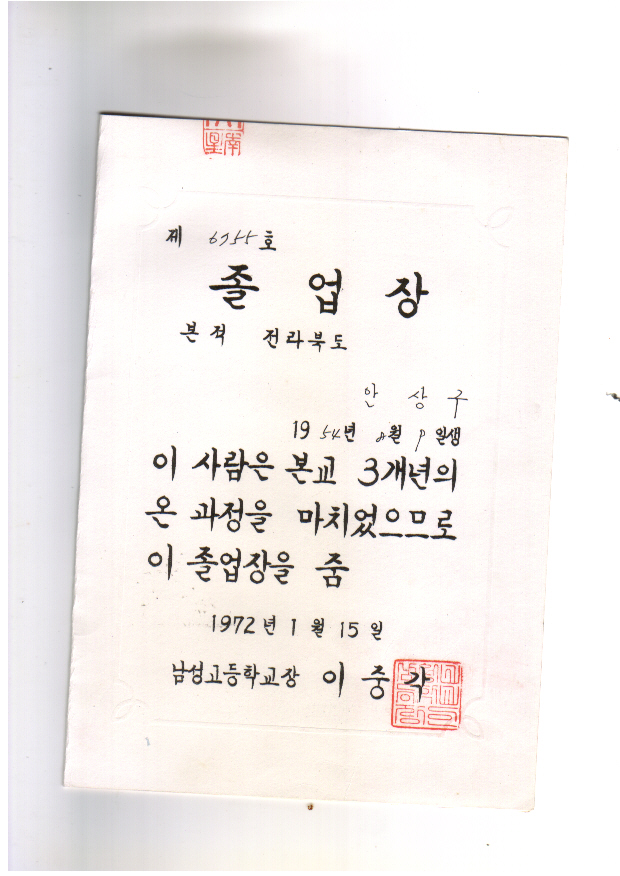 제 6955호
졸 업 장
본 적 전라북도
안 상 구
19 54년 8월 9일생
이 사람은 본교 3개년의
온 과정을 마치었으므로
이 졸업장을 줌
1972 년 1 월 15 일
남성고등학교장 이 중 각